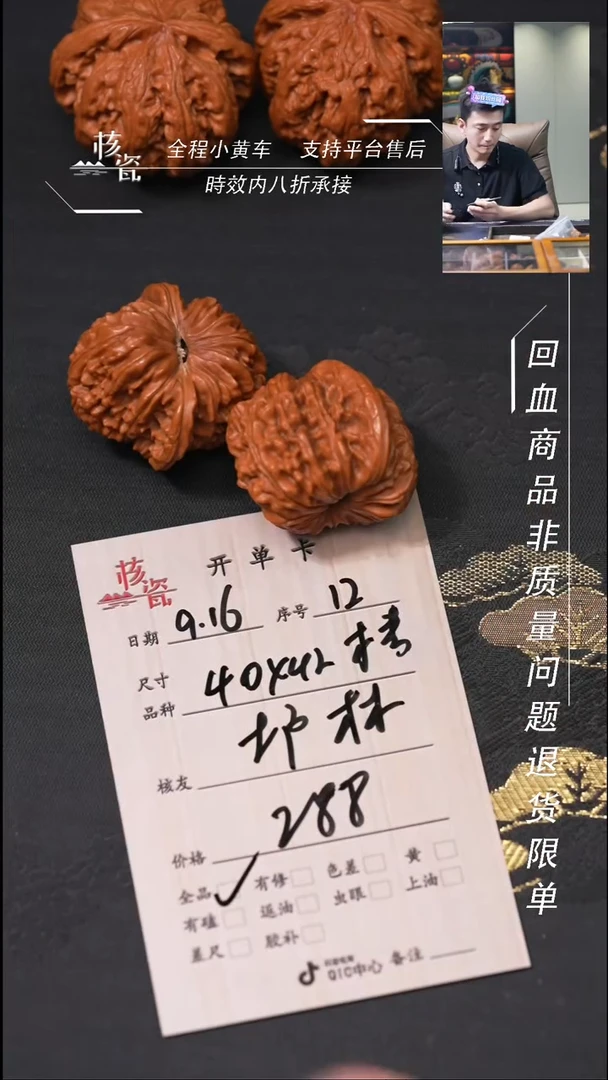 核瓷
全程小黄车 支持平台售后
時效内八折承接
回血商品非质量问题退货限单
核瓷
开单卡
日期 9.16 序号 12
尺寸 40X42
品种
核友
价格 288
全品 有修 色差 黄
有磕 返油 虫眼 上油
差尺 胶补
抖音电商
QIC中心 备注